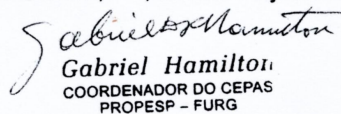 Gabriel Hamilton
Gabriel Hamilton
COORDENADOR DO CEPAS
PROPESP – FURG